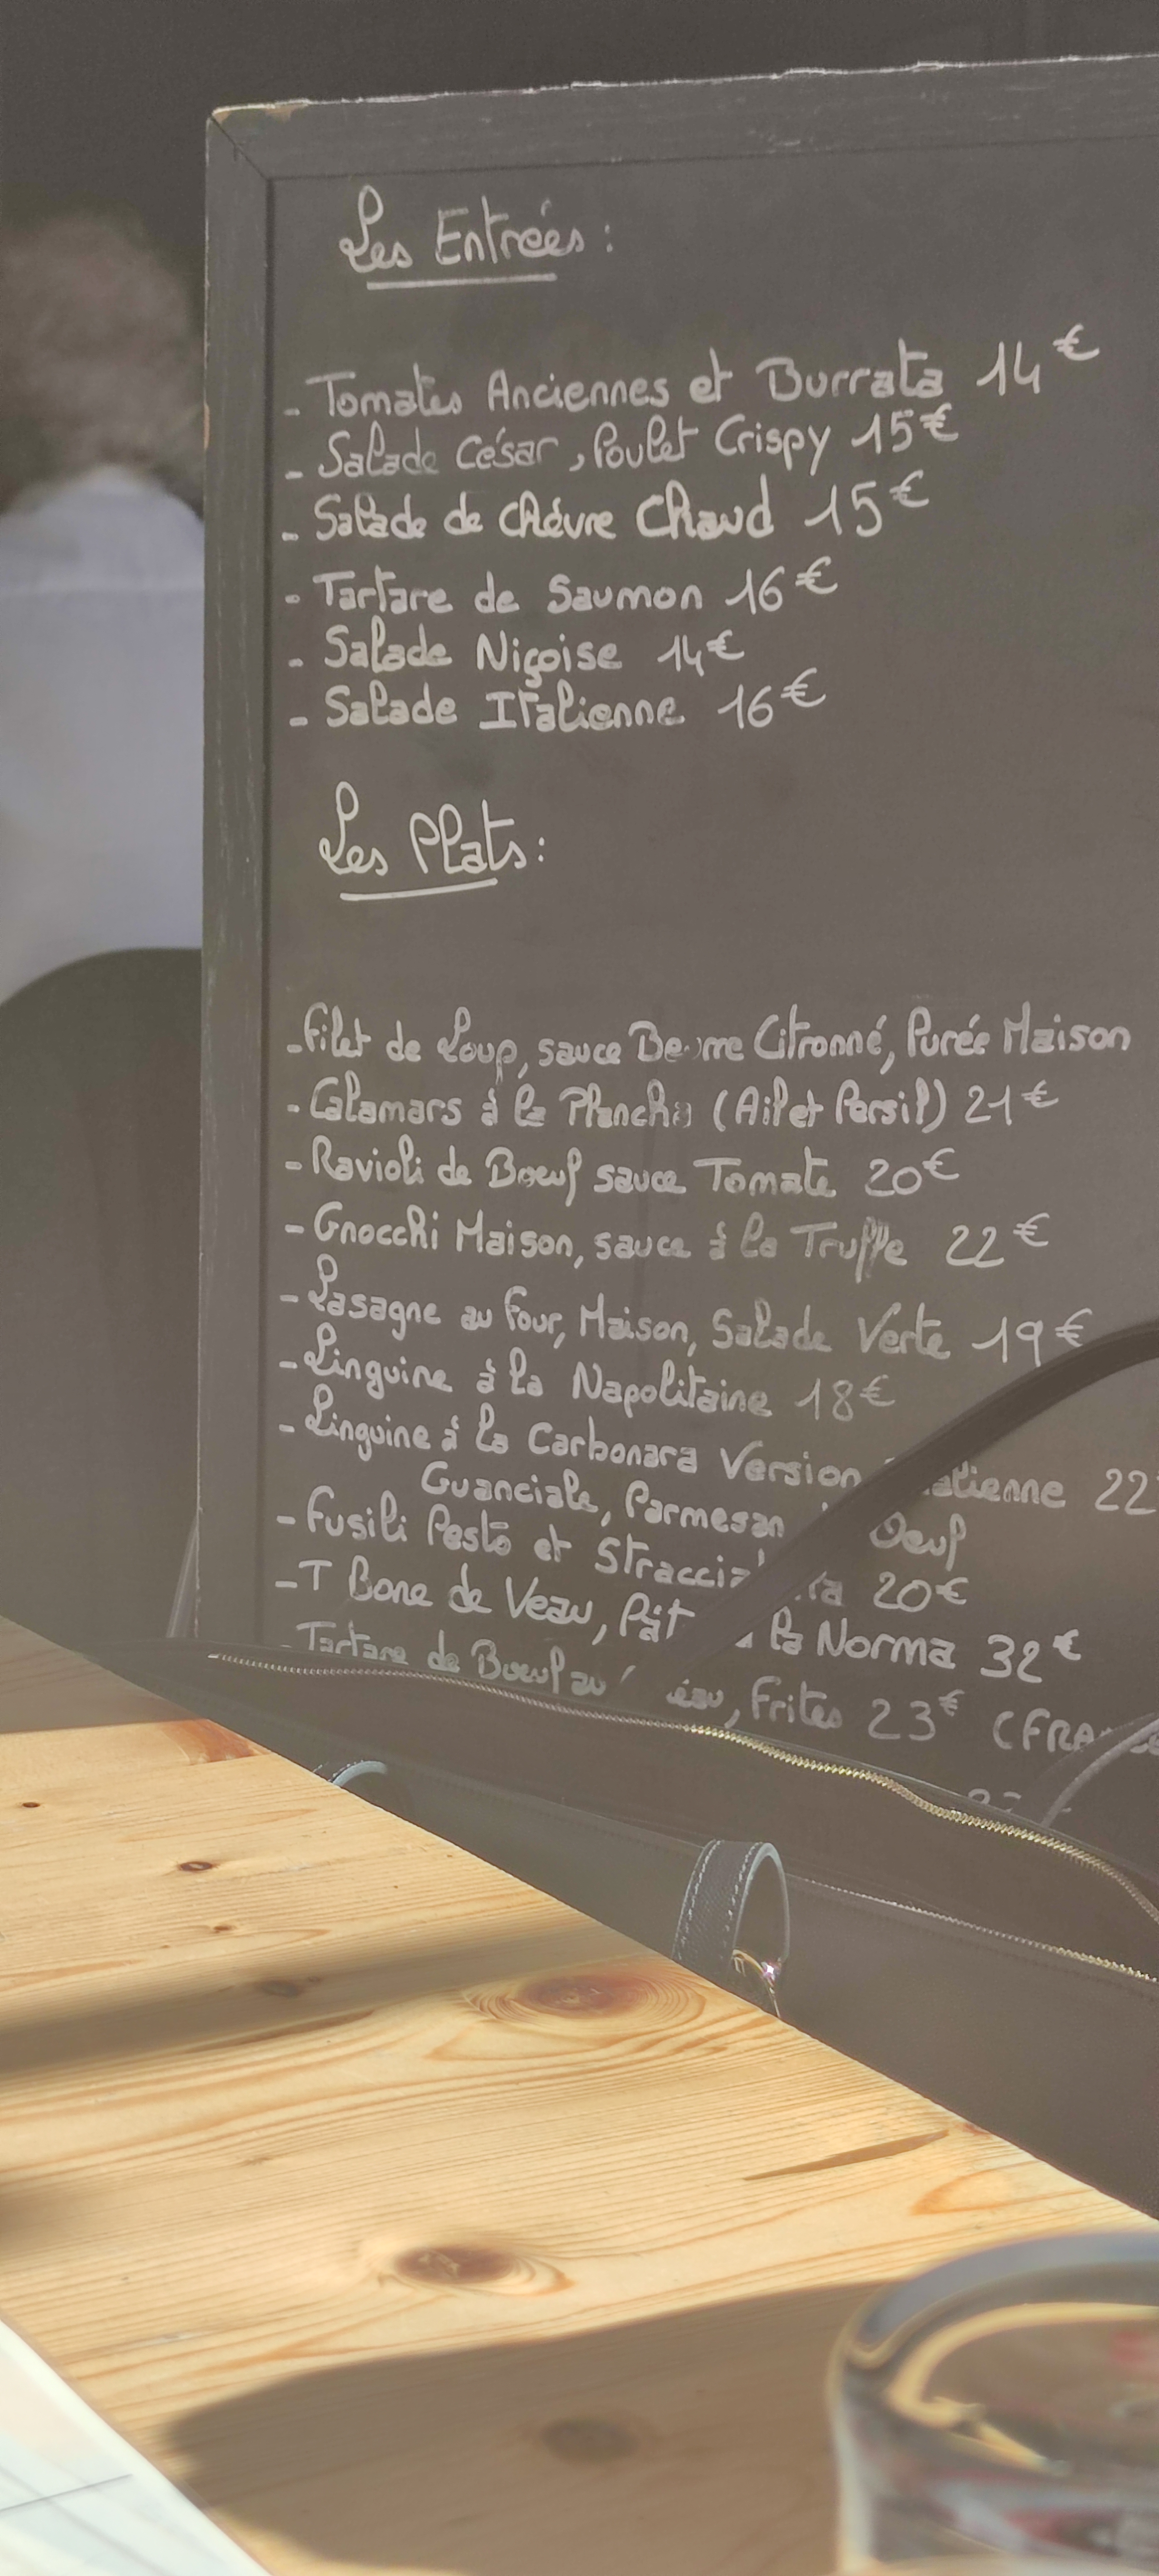 Les Entrées :
- Tomates Anciennes et Burrata 14€
- Salade César, Poulet Crispy 15€
- Salade de chèvre Chaud 15€
- Tartare de Saumon 16€
- Salade Niçoise 14€
- Salade Italienne 16€
Les Plats :
- Filet de Loup, sauce Beurre Citronné, Purée Maison
- Calamars à la Plancha (Ail et Persil) 21€
- Ravioli de Boeuf sauce Tomate 20€
- Gnocchi Maison, sauce à la Truffe 22€
- Lasagne au four, Maison, Salade Verte 19€
- Linguine à la Napolitaine 18€
- Linguine à la Carbonara Version 22
Guanciale, Parmesan Oeuf
- Fusili Pesto et 20€
- T Bone de Veau, la Norma 32€
- Tartare de Boeuf au Frites 23€